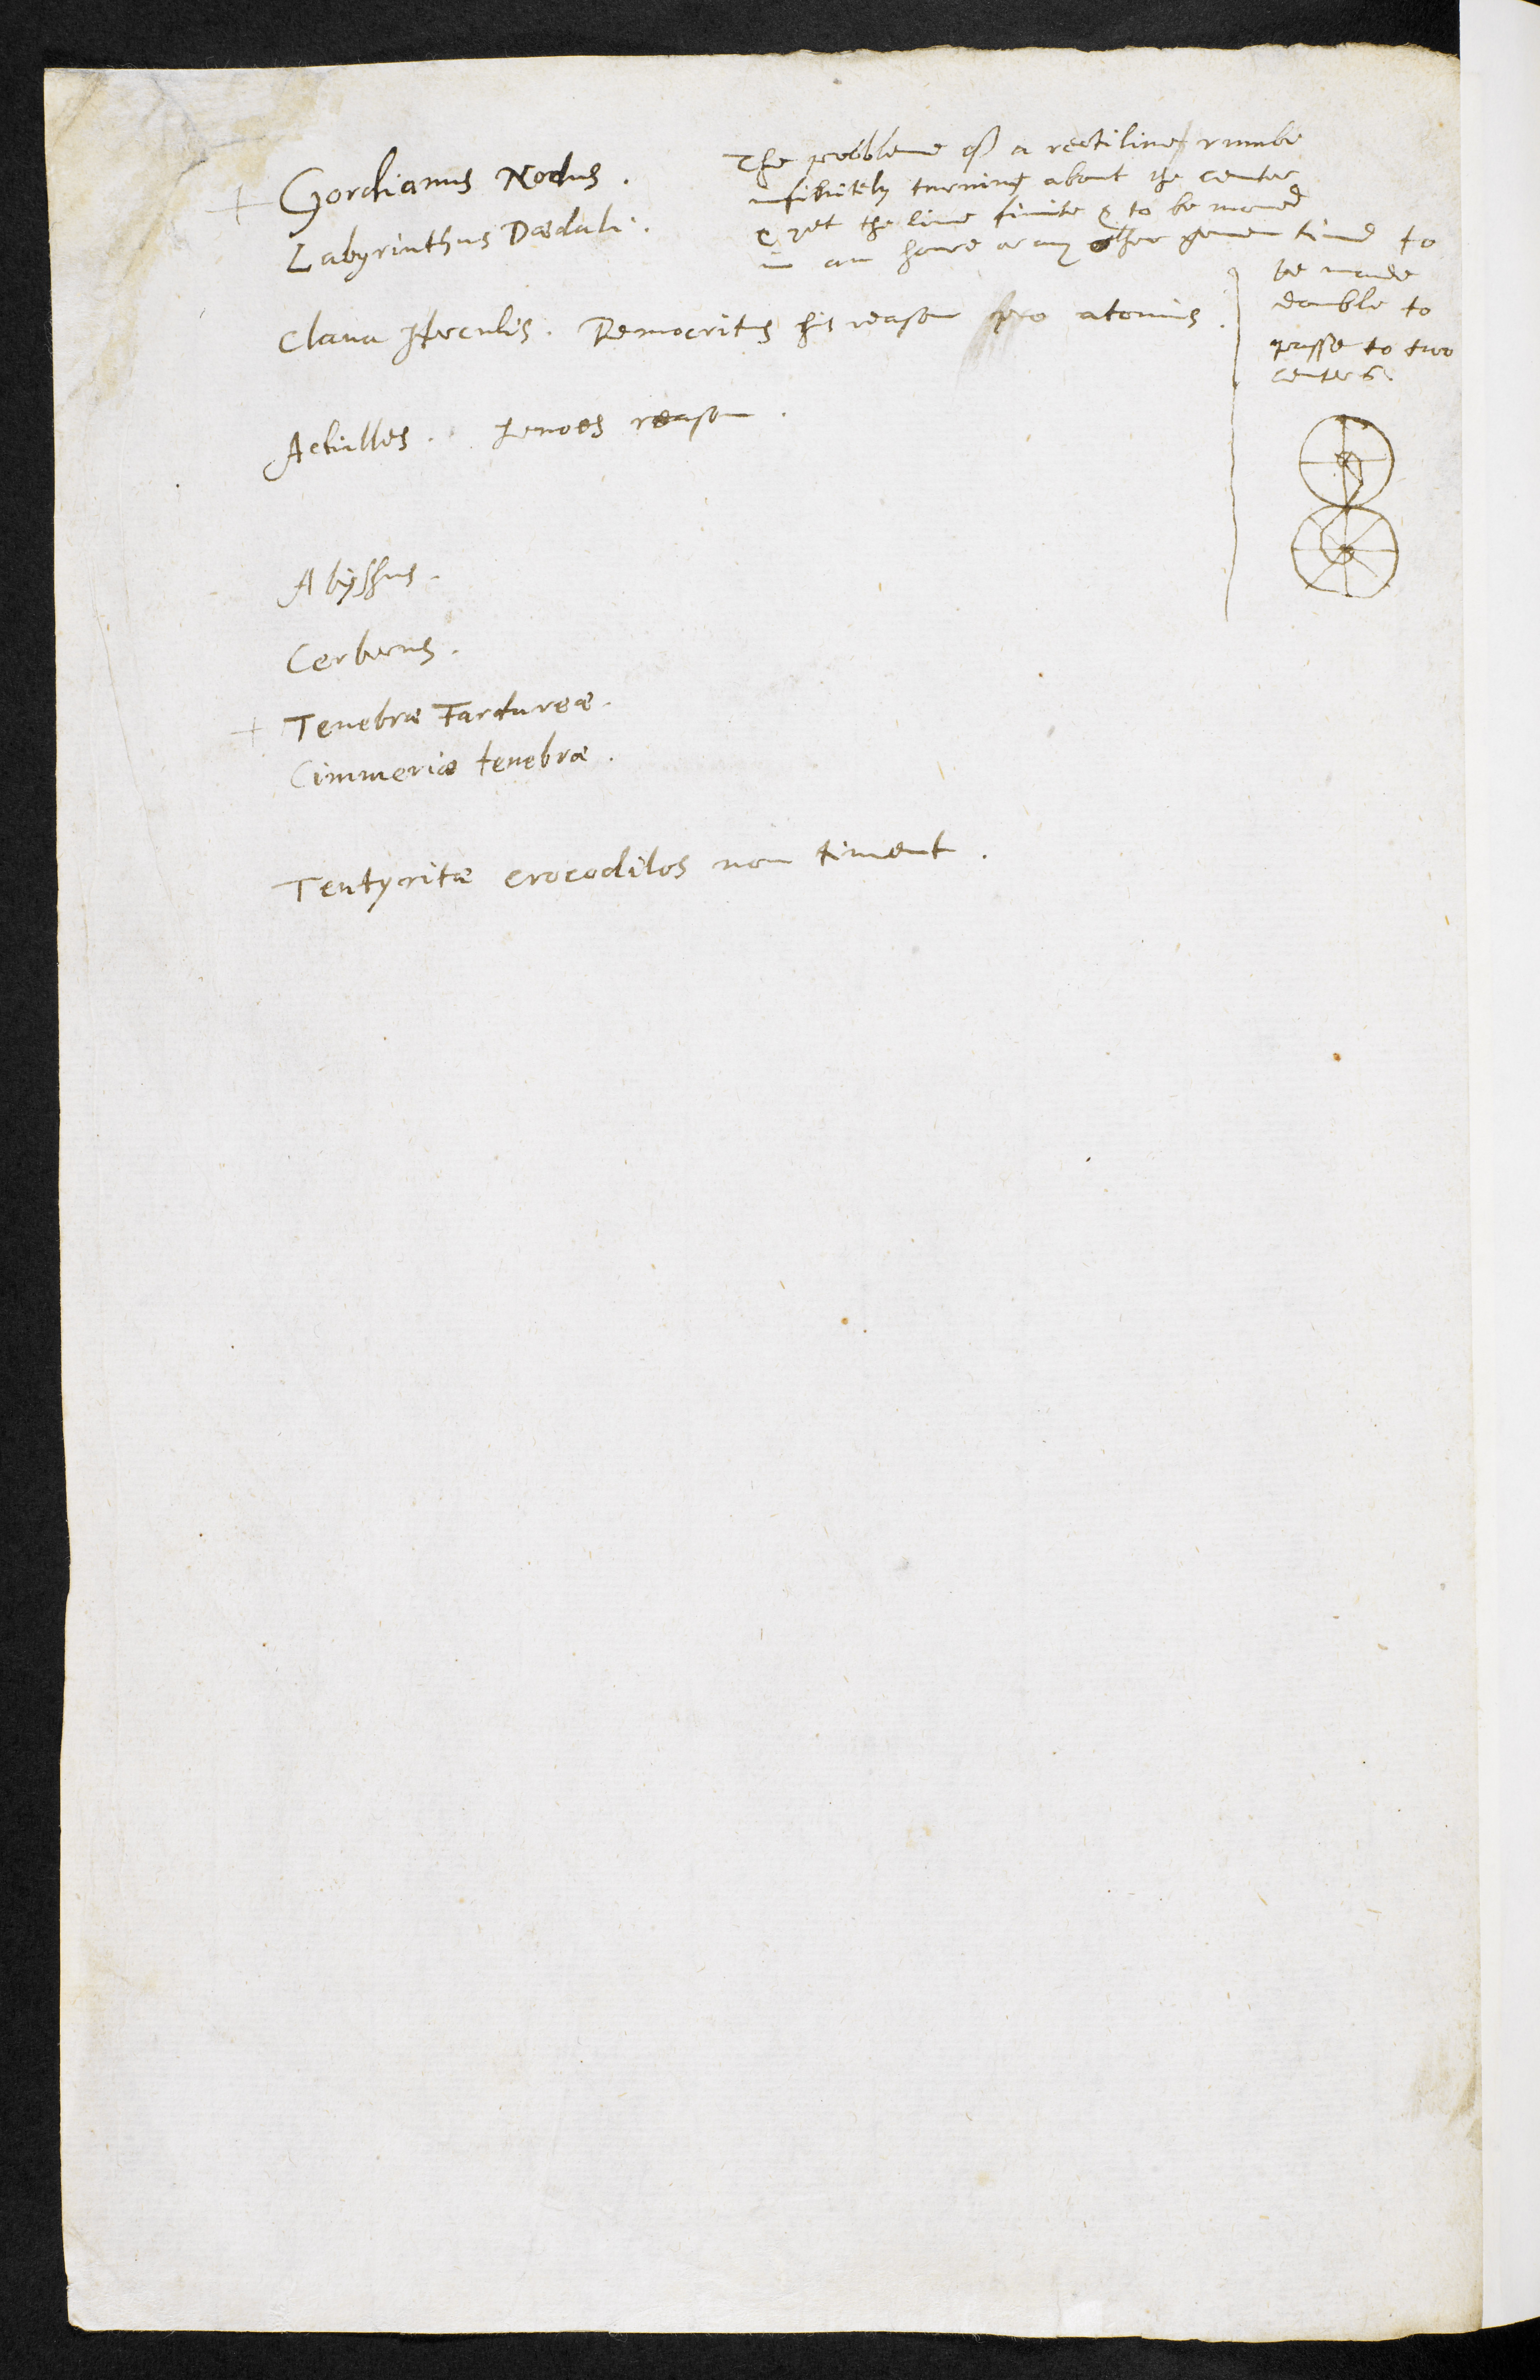 Gordianus Nodus.
Labyrinthus Dædali.
The probleme of a rectiline rumbe
infinitely turning about the center
& yet the line finite & to be moued
in an houre or any other geuen time to
be made
double to
passe to two
centers.
Claua Herculis. Democritus his reason pro atomis.
Achilles. Zenoes reason.
Abyssus.
Cerberus.
Tenebræ Tartareæ.
Cimmeriæ tenebræ.
Tentyritæ crocodilos non timent.